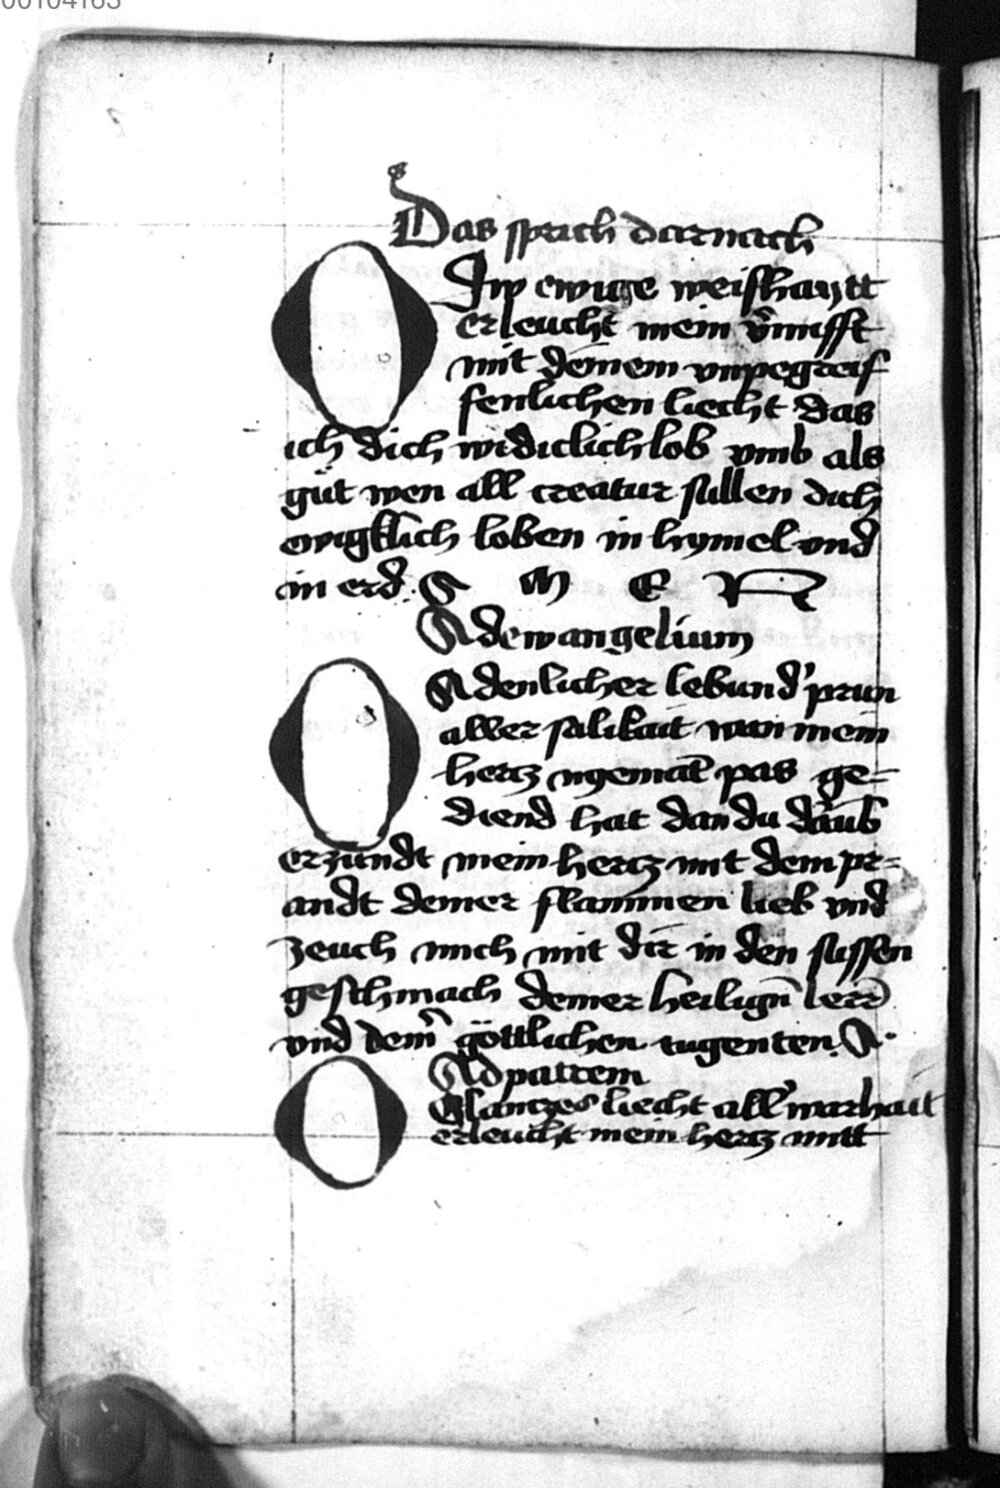 00104163
Das sprich darnach
O Dw ewige weißhaytt
erleucht mein v̄nufft
mit deinem vnpegreif
fenlichen liecht das
ich dich wirdiclich lob vmb als
gůt wen all creatur sullen dich
ewigklich loben in hymel vnd
in erd. A M E N
Ad ewangelium
O Adenlicher lebund' prun
aller salikait wan mein
hertz nyemāt pas ge=
diend hat dan du
erzundt mein hertz mit dem pr=
andt deiner flammen lieb vnd
zeuch mich mit dir in den sussen
geschmach deiner heilign̄ lerr̄
vnd dein̄ göttlichen tugenten. A.
Ad patrem
O Glantzes liecht all' warhait
erleucht mein hertz mitt